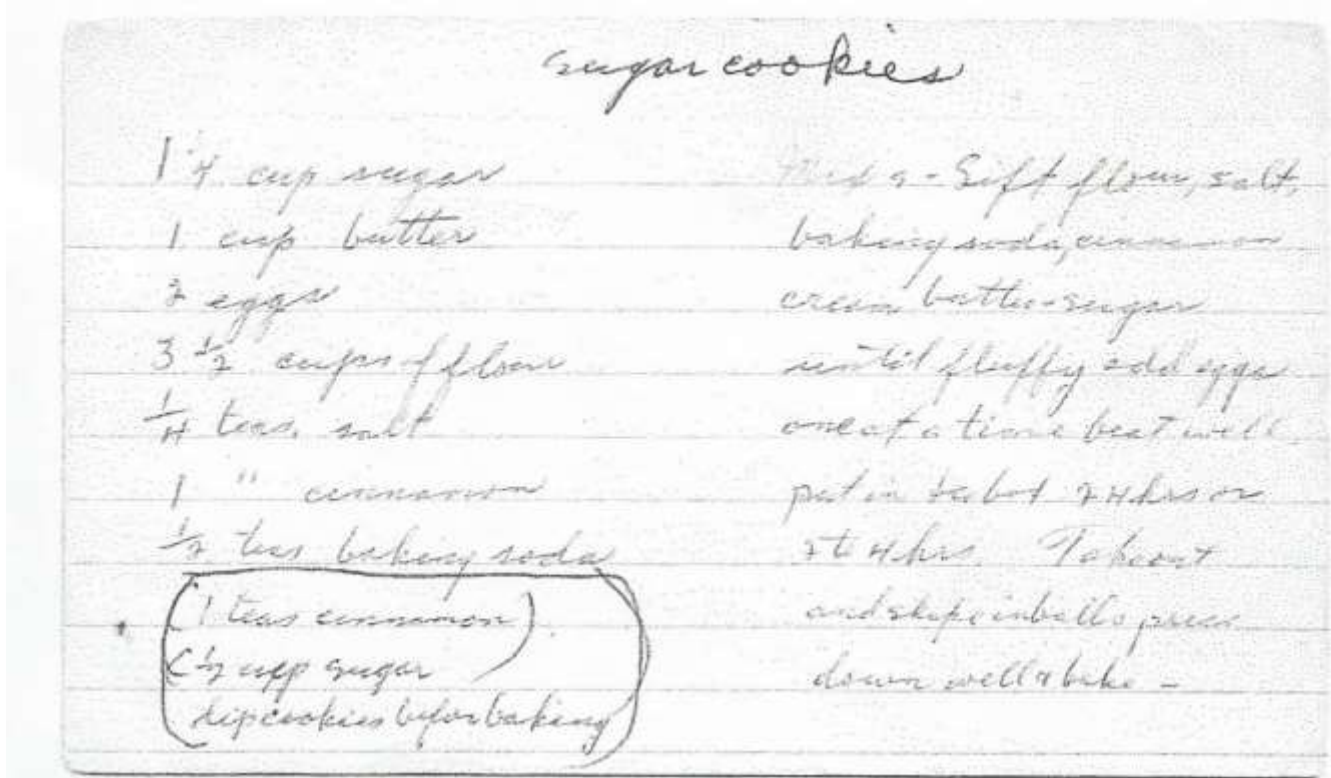 sugar cookies
1 1/4 cup sugar
1 cup butter
2 eggs
3 1/2 cups of flour
1/4 teas. salt
1 " cinnamon
1/2 teas baking soda
(1 teas cinnamon)
(1/2 cup sugar
dip cookies befor baking
Sift flour, salt,
baking soda, cinnamon
cream butter sugar
until fluffy add eggs
one at a time beat well
put in 24 hrs or
2 to 4 hrs. Take out
and shape in balls press
down well & bake -